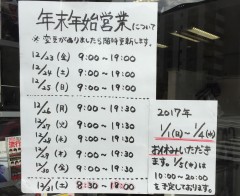 年末年始営業について
※ 空きがありましたら随時更新します。
12/23 (金) 9:00~19:00
12/24 (土) 9:00~19:00
12/25 (日) 9:00~19:00
12/26 (月) 9:00~19:30
12/27 (火) 9:00~19:30
12/28 (水) 9:00~19:30
12/29 (木) 9:00~19:30
12/30 (金) 9:00~19:30
12/31 (土) 8:30~18:00
2017年
1/1(日)~1/4(水)
お休みいただき
ます。1/5(木)は
10:00~20:00
を予定しております。